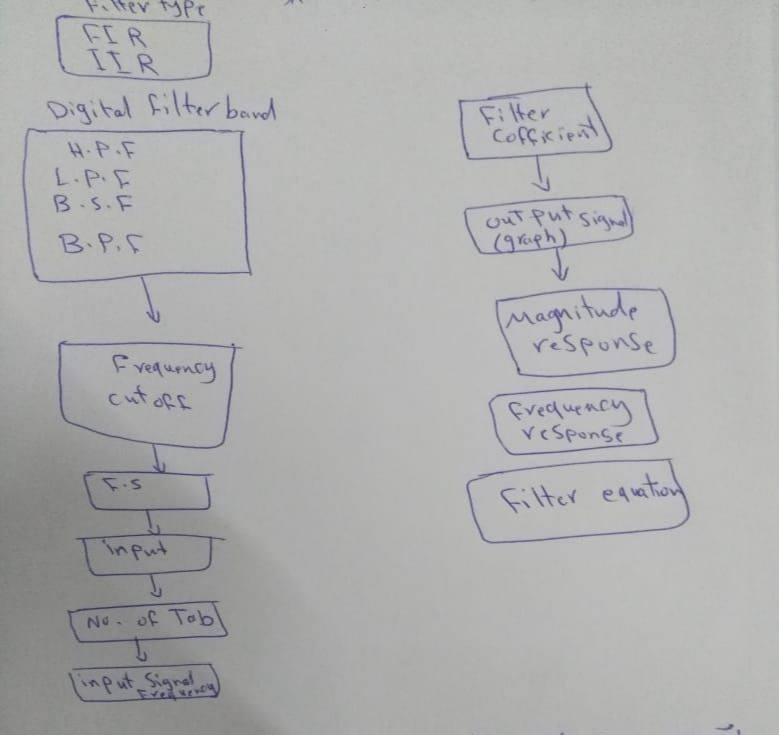 Filter type
FIR
IIR
Digital filter band
H.P.F
L.P.F
B.S.F
B.P.F
Frequency
cutoff
F.S
input
No. of Tab
input Signal
Frequency
Filter
Cofficient
output signal
(graph)
Magnitude
response
frequency
response
Filter equation